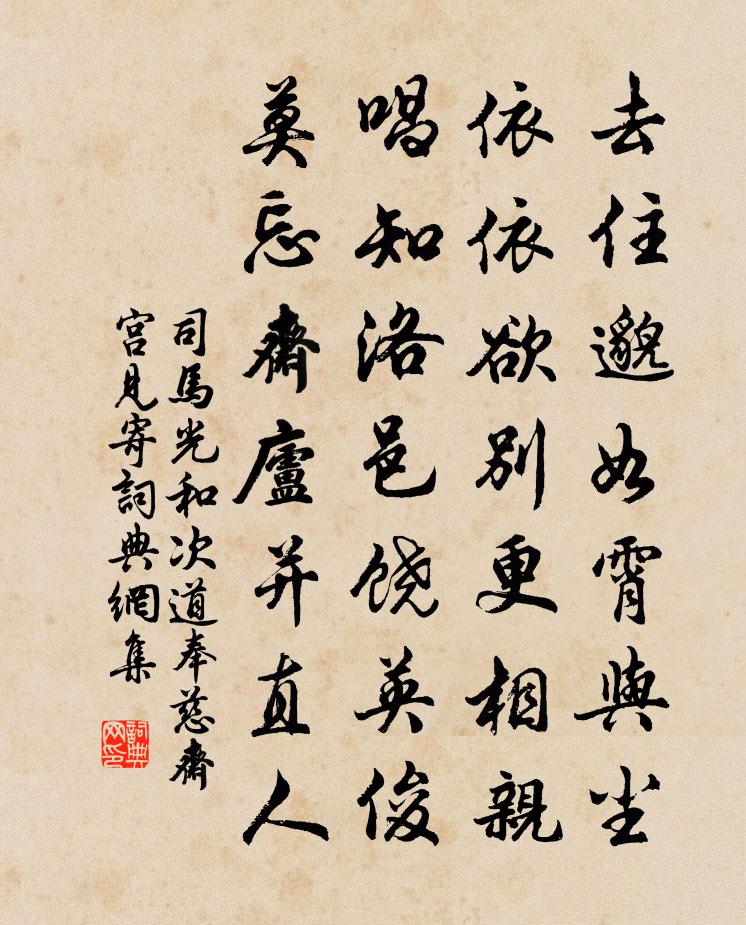 去住邈如霄與尘
依依欲别更相親
唱知洛邑饶英俊
莫忘齋廬并直人
司馬光和次道奉慈齋
宫見寄詞典網集
詞典网印